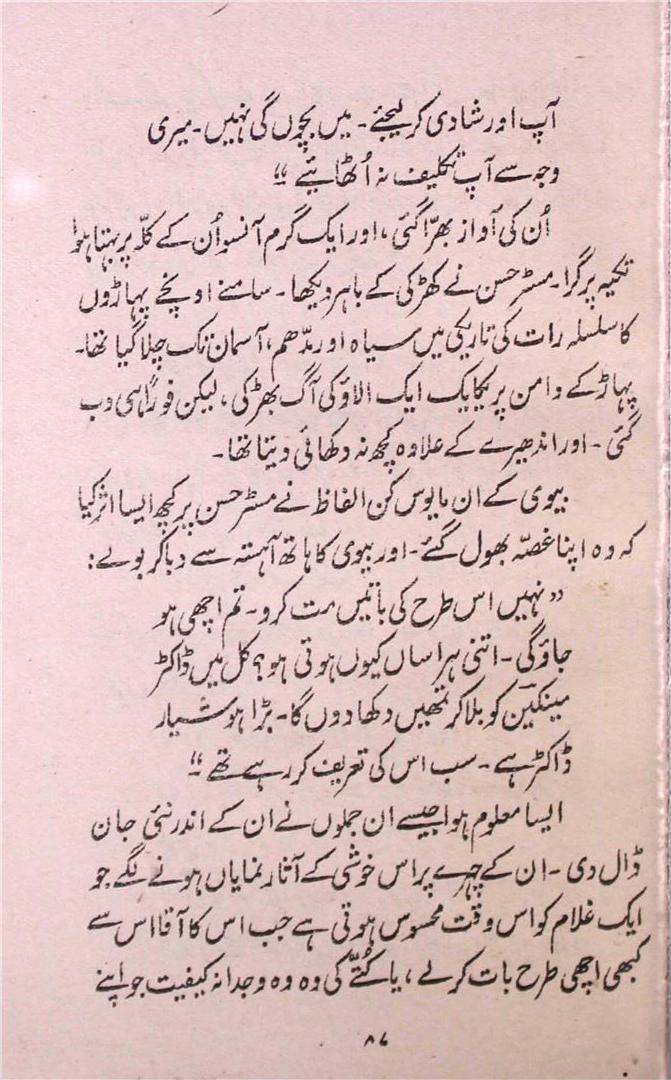 آپ اور شادی کر لیجئے۔ میں بچوں گی نہیں۔ میری
وجہ سے آپ تکلیف نہ اُٹھائیے“
اُن کی آواز بھرّا گئی، اور ایک گرم آنسو اُن کے کلّہ پر بہتا ہوا
تکیہ پر گرا۔ مسٹر حسن نے کھڑکی کے باہر دیکھا۔ سامنے اونچے پہاڑوں
کا سلسلہ رات کی تاریکی میں سیاہ اور مدّھم، آسمان تک چلا گیا تھا۔
پہاڑ کے دامن پر یکایک ایک الاؤ کی آگ بھڑکی، لیکن فوراً ہی دب
گئی۔ اور اندھیرے کے علاوہ کچھ نہ دکھائی دیتا تھا۔
بیوی کے ان مایوس کن الفاظ نے مسٹر حسن پر کچھ ایسا اثر کیا
کہ وہ اپنا غصّہ بھول گئے۔ اور بیوی کا ہاتھ آہستہ سے دبا کر بولے:
”نہیں اس طرح کی باتیں مت کرو۔ تم اچھی ہو
جاؤ گی۔ اتنی ہراساں کیوں ہوتی ہو؟ کل میں ڈاکٹر
مینکین کو بلا کر تمھیں دکھا دوں گا۔ بڑا ہوشیار
ڈاکٹر ہے۔ سب اس کی تعریف کر رہے تھے“
ایسا معلوم ہوا جیسے ان جملوں نے ان کے اندر نئی جان
ڈال دی۔ ان کے چہرے پر اس خوشی کے آثار نمایاں ہونے لگے جو
ایک غلام کو اس وقت محسوس ہوتی ہے جب اس کا آقا اس سے
کبھی اچھی طرح بات کر لے، یا کُتّے کی وہ وہ وجدانہ کیفیت جو اپنے
۸۷